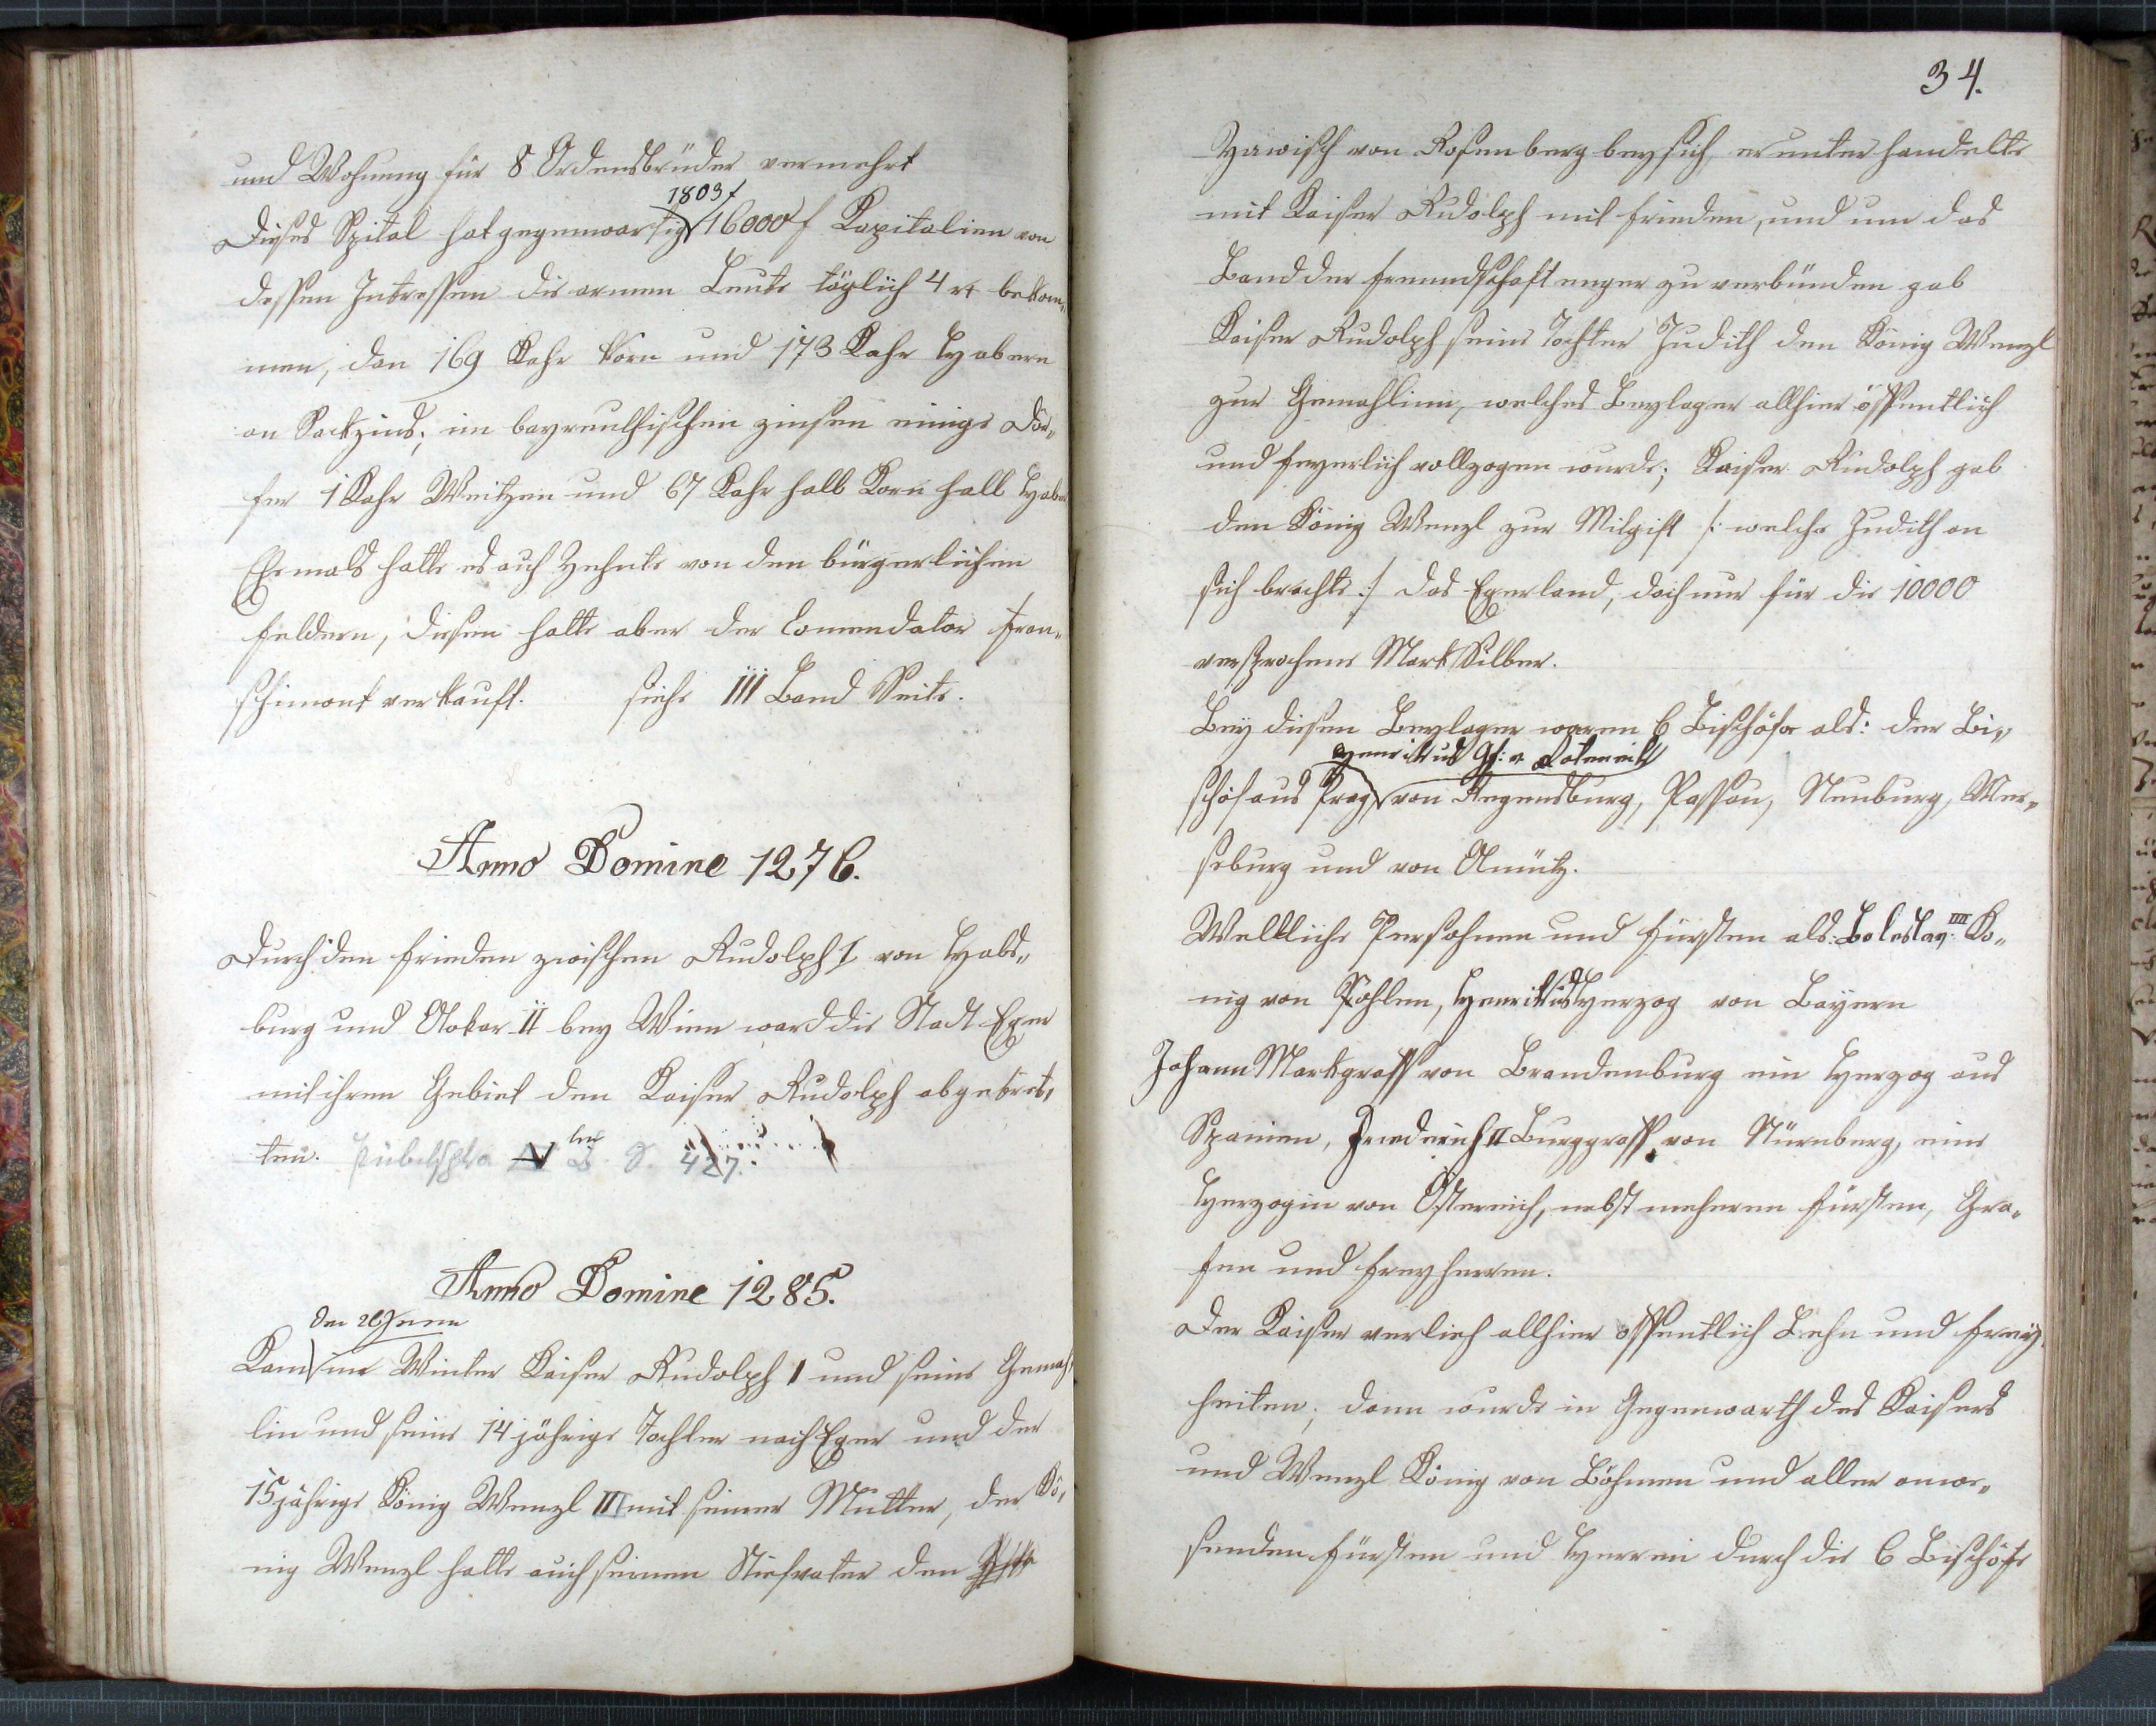 und Wohnung für 8 Ordensbrüder vermehrt
1803
Dieses Spital hat gegenwartig 16000 f Kapitalien von
dessen Intressen die armen Leute täglich 4 xr bekom„
men, dan 169 Kahr Korn und 173 Kahr Habern
an Sackzins; im bayreuthischen zinsen einige Dör„
fer 1 Kahr Weitzen und 67 Kahr halb Korn halb Haber
Ehemals hatte es auch Zehnte von den bürgerlichen
Feldern, diesen hatte aber der Comendator Fran„
schimont verkauft. siehe III Band Seite.
Anno Domine 1276.
Durch den Frieden zwischen Rudolph I von Habs„
burg und Otokar II bey Wien ward die Stadt Eger
mit ihren Gebiet den Kaiser Rudolph abgetret„
ten. S. 427.
Anno Domine 1285.
den 26 Jenn
Kam im Winter Kaiser Rudolph I und seine Gemah„
lin und seine 14 jährige Tochter nach Eger und der
15 jährige König Wenzl III mit seiner Mutter, der Kö„
nig Wenzl hatte auch seinen Stiefvater den
34.
Zawisch von Rosenberg bey sich, er unterhandelte
mit Kaiser Rudolph mit Frieden, und um das
Band der Freundschaft enger zu verbünden gab
Kaiser Rudolph seine Tochter Judith den König Wenzl
zur Gemahlinn, welches Beylager allhier öffentlich
und feyerlich vollzogen wurde; Kaiser Rudolph gab
den König Wenzl zur Mitgift /: welche Judith an
sich brachte :/ das Egerland, doch nur für die 10000
versprochene Mark Silber.
Bey diesen Beylager waren 6 Bischöfe als: der Bi„
Henrikus Gf: v. Roteneik
schof aus Prag, von Regensburg, Passau, Neuburg, Mer„
seburg und von Olmütz.
Weltliche Persohnen und Fürsten als: Boleslav IIII Kö„
nig von Pohlen, Henrikus Herzog von Bayern
Johann Markgraff von Brandenburg ein Herzog aus
Spanien, Friederich II Burggraff von Nürnberg, eine
Herzogin von Östereich, nebst meheren Fürsten, Gra„
fen und Freyherren.
Der Kaiser verlieh allhier öffentlich Lehn und Frey„
heiten; dann wurde in Gegenwarth des Kaisers
und Wenzl König von Böhmen und aller anwe„
senden Fürsten und Herren durch die 6 Bischöfe